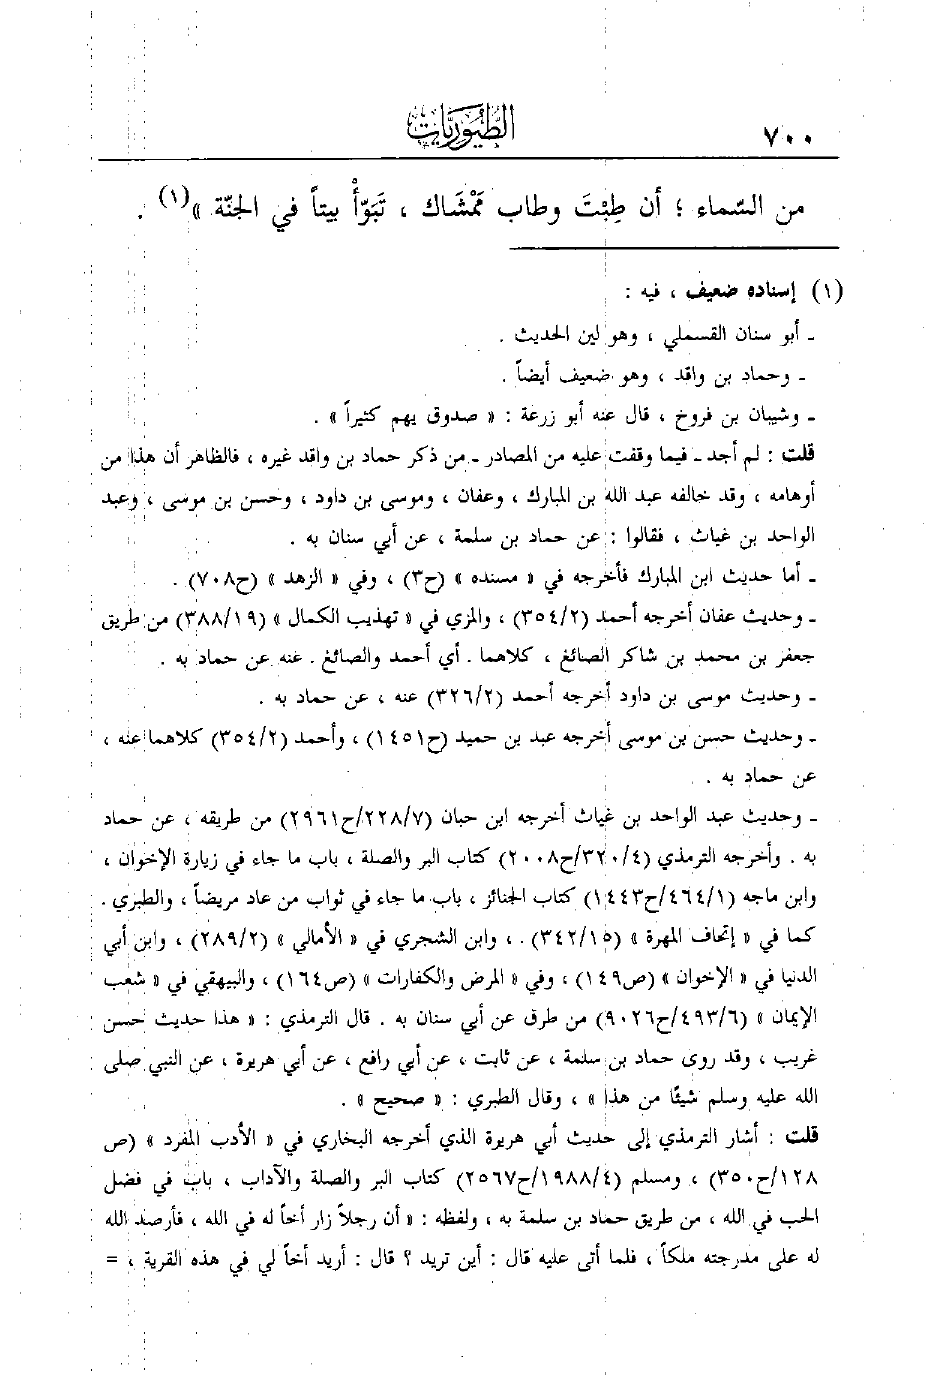 ٧٠٠
الطيوريات
من السّماء ؛ أن طِبْتَ وطاب مَمْشَاك ، تَبَوّأْ بيتاً في الجنّة »(١) .
(١) إسناده ضعيف ، فيه :
ـ أبو سنان القسملي ، وهو لين الحديث .
ـ وحماد بن واقد ، وهو ضعيف أيضاً .
ـ وشيبان بن فروخ ، قال عنه أبو زرعة : « صدوق يهم كثيراً » .
قلت : لم أجد ـ فيما وقفت عليه من المصادر ـ من ذكر حماد بن واقد غيره ، فالظاهر أن هذا من
أوهامه ، وقد خالفه عبد الله بن المبارك ، وعفان ، وموسى بن داود ، وحسن بن موسى ، وعبد
الواحد بن غياث ، فقالوا : عن حماد بن سلمة ، عن أبي سنان به .
ـ أما حديث ابن المبارك فأخرجه في « مسنده » (ح٣) ، وفي « الزهد » (ح٧٠٨) .
ـ وحديث عفان أخرجه أحمد (٣٥٤/٢) ، والمزي في « تهذيب الكمال » (٣٨٨/١٩) من طريق
جعفر بن محمد بن شاكر الصائغ ، كلاهما . أي أحمد والصائغ . عنه عن حماد به .
ـ وحديث موسى بن داود أخرجه أحمد (٣٢٦/٢) عنه ، عن حماد به .
ـ وحديث حسن بن موسى أخرجه عبد بن حميد (ح١٤٥١) ، وأحمد (٣٥٤/٢) كلاهما عنه ،
عن حماد به .
ـ وحديث عبد الواحد بن غياث أخرجه ابن حبان (٢٢٨/٧/ح٢٩٦١) من طريقه ، عن حماد
به . وأخرجه الترمذي (٣٢٠/٤/ح٢٠٠٨) كتاب البر والصلة ، باب ما جاء في زيارة الإخوان ،
وابن ماجه (٤٦٤/١/ح١٤٤٣) كتاب الجنائز ، باب ما جاء في ثواب من عاد مريضاً ، والطبري .
كما في « إتحاف المهرة » (٣٤٢/١٥) . ، وابن الشجري في « الأمالي » (٢٨٩/٢) ، وابن أبي
الدنيا في « الإخوان » (ص١٤٩) ، وفي « المرض والكفارات » (ص١٦٤) ، والبيهقي في « شعب
الإيمان » (٤٩٣/٦/ح٩٠٢٦) من طرق عن أبي سنان به . قال الترمذي : « هذا حديث حسن
غريب ، وقد روى حماد بن سلمة ، عن ثابت ، عن أبي رافع ، عن أبي هريرة ، عن النبي صلى
الله عليه وسلم شيئًا من هذا » ، وقال الطبري : « صحيح » .
قلت : أشار الترمذي إلى حديث أبي هريرة الذي أخرجه البخاري في « الأدب المفرد » (ص
١٢٨/ح٣٥٠) ، ومسلم (١٩٨٨/٤/ح٢٥٦٧) كتاب البر والصلة والآداب ، باب في فضل
الحب في الله ، من طريق حماد بن سلمة به ، ولفظه : « أن رجلاً زار أخاً له في الله ، فأرصد الله
له على مدرجته ملكاً ، فلما أتى عليه قال : أين تريد ؟ قال : أريد أخاً لي في هذه القرية ، =